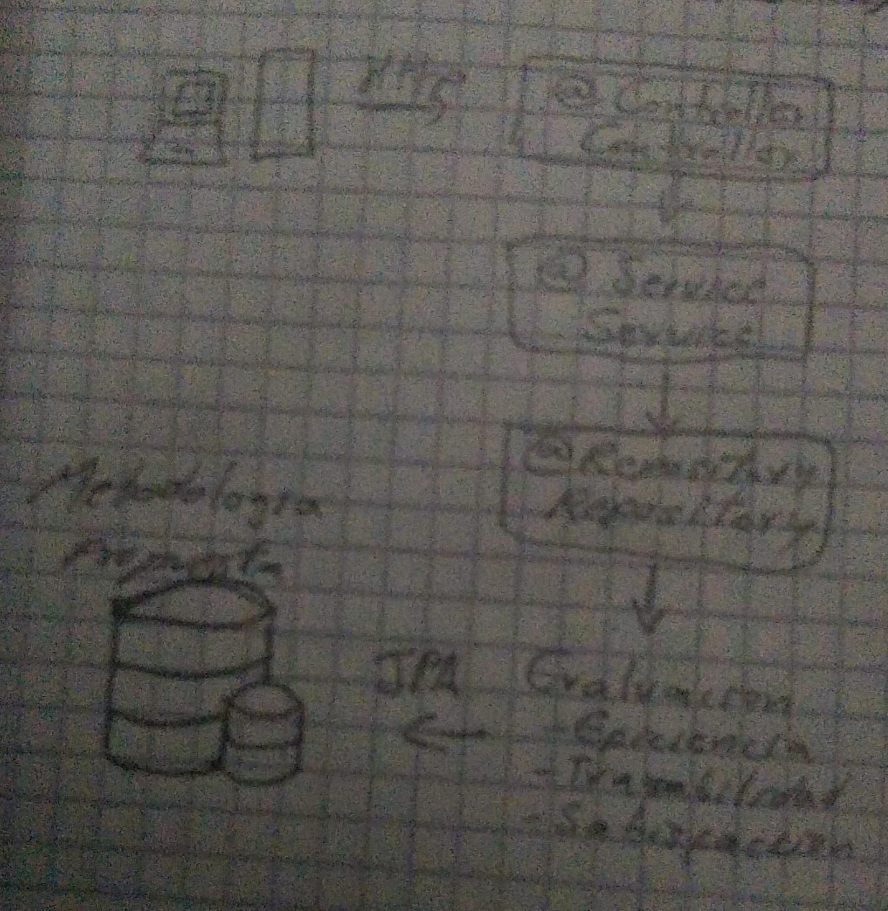 @ Controller
Controller
@ Service
Service
@ Repository
Repository
Metodologia
JPA
Evaluacion
- Eficiencia
- Trazabilidad
- Satisfaccion